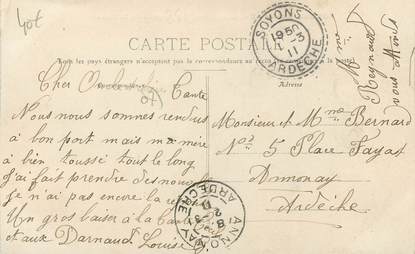 40f
CARTE POSTALE
Tous les pays étrangers n'acceptent pas la correspondance au recto
Adresse
SOYONS
19 50
1 -3
11
ARDÈCHE
Cher Oncle et chère Tante
Nous nous sommes rendus
à bon port mais ma mère
à bien toussé tout le long
j'ai fait prendre des
je n'ai pas encore la
Un gros baiser à la
et aux Darnaud Louise
Monsieur et Mme Bernard
Nos 5 Place Fayat
Annonay
Ardèche
Mme
Reynaud
vous
ANNONAY
ARDÈCHE